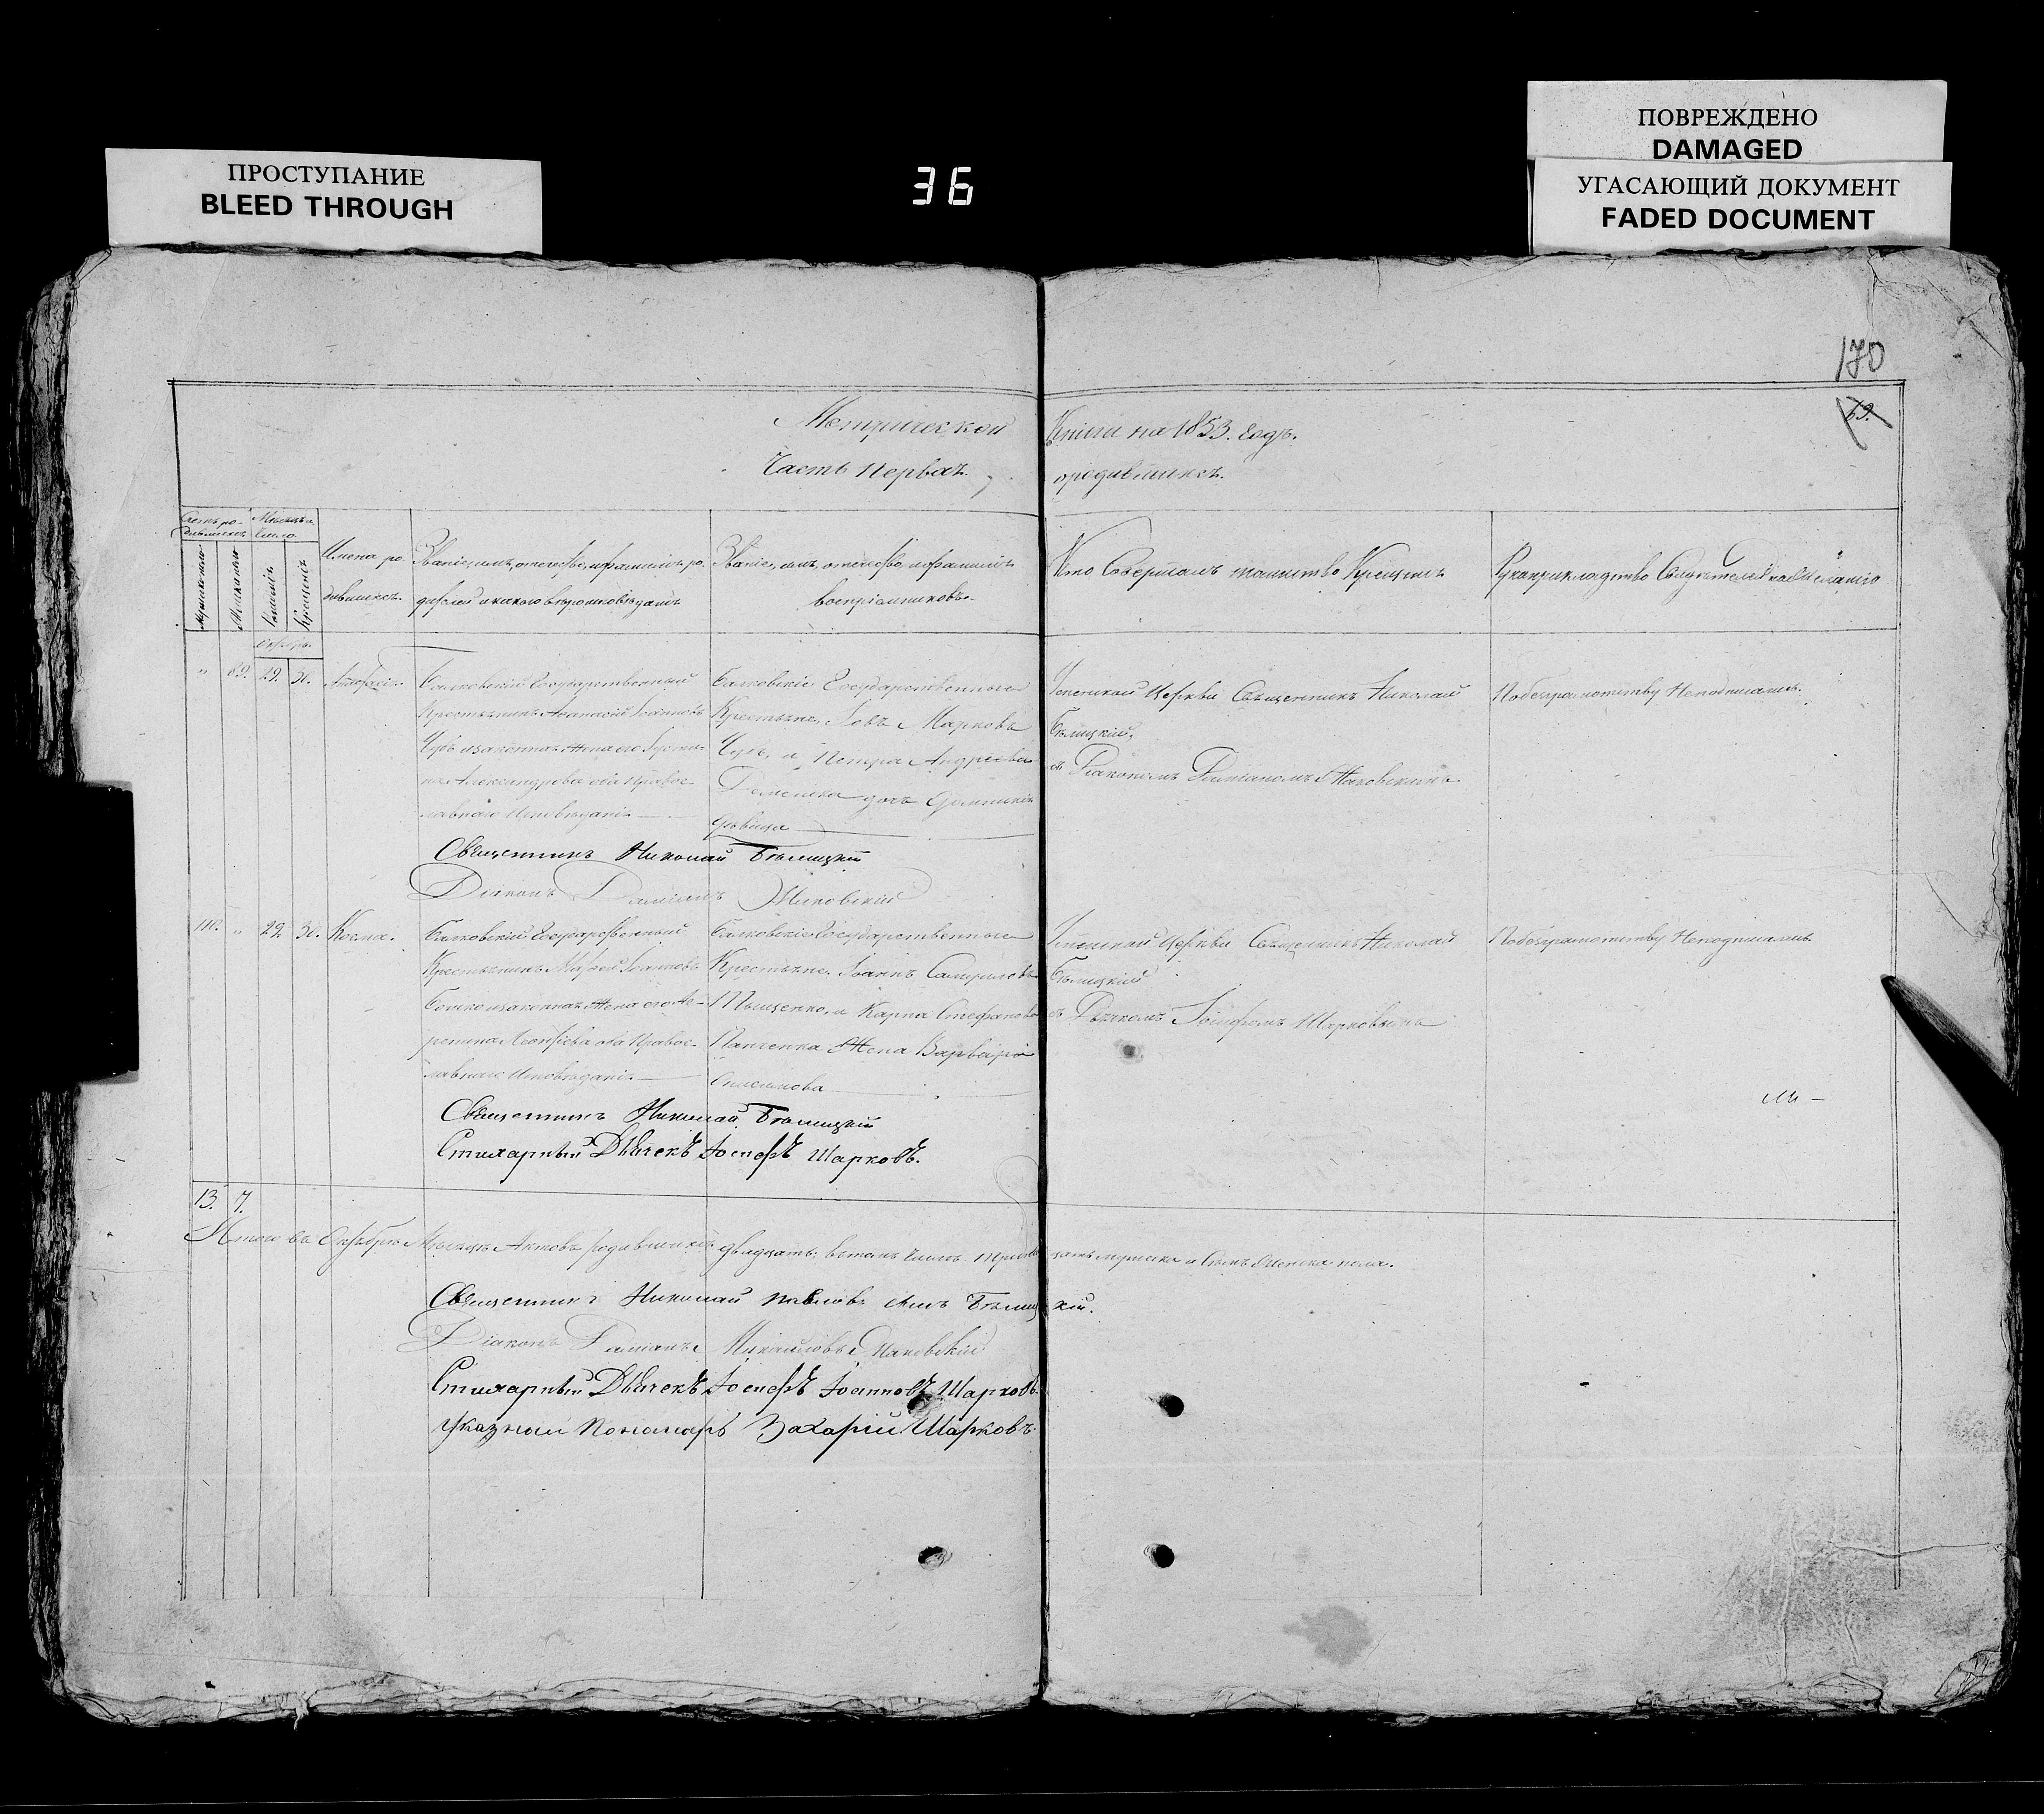 ПРОСТУПАНИЕ
BLEED THROUGH
36
ПОВРЕЖДЕНО
DAMAGED
УГАСАЮЩИЙ ДОКУМЕНТ
FADED DOCUMENT
170
69.
Метрической Книги на 1853. Годъ.
Часть первая. о родившихся.
Счетъ ро-
дившихся
Мѣсяцъ и
число
Мужескаго
Женскаго
Рожденія
Крещенія
Имена ро-
дившихся.
Званіе, имя, отчество, и фамилія ро-
дителей и какого вѣроисповѣданія
Званіе, имя, отчество, и фамилія
воспріемниковъ.
Кто Совершалъ таинство Крещенія
Рукоприкладство Свидѣтелей по желанію
Октябрь
" 69. 29. 30. Анастасія.
Балковскій Государственный
Крестьянинъ Аѳанасій Іоанновъ
законная Жена его
Александрова оба Правос-
лавнаго Исповѣданія
Балковскіе Государственные
Крестьяне, Іовъ Марковъ
и Петра Андреева
дочь
дѣвица
Церкви Священникъ Николай
Бѣлицкій,
съ Діакономъ Даміаномъ
По безграмотству Неподписались.
Священникъ Николай Бѣлицкій
Діаконъ Даміанъ
110. " 29. 30. Косма.
Балковскій Государственный
Крестьянинъ Матѳей Іоанновъ
законная Жена его
Леонтіева оба Правос-
лавнаго Исповѣданія
Балковскіе Государственные
Крестьяне, Іоаннъ
и Карпа Стефанова
Панченка Жена Варвара
Церкви Священникъ Николай
Бѣлицкій
съ Дьячкомъ Іосифомъ Шарковымъ
По безграмотству Неподписались
Священникъ Николай Бѣлицкій
Стихарный Дьячекъ Іосифъ Шарковъ.
13. 7.
Итого въ Октябрѣ Мѣсяцѣ Актовъ родившихся двадцать; въ томъ числѣ тринадцать мужеска и Семь Женска пола.
Священникъ Николай Павловъ Сынъ Бѣлицкій.
Діаконъ Даміанъ Михайловъ
Стихарный Дьячекъ Іосифъ Іоанновъ Шарковъ.
Указный Пономарь Захарій Шарковъ.